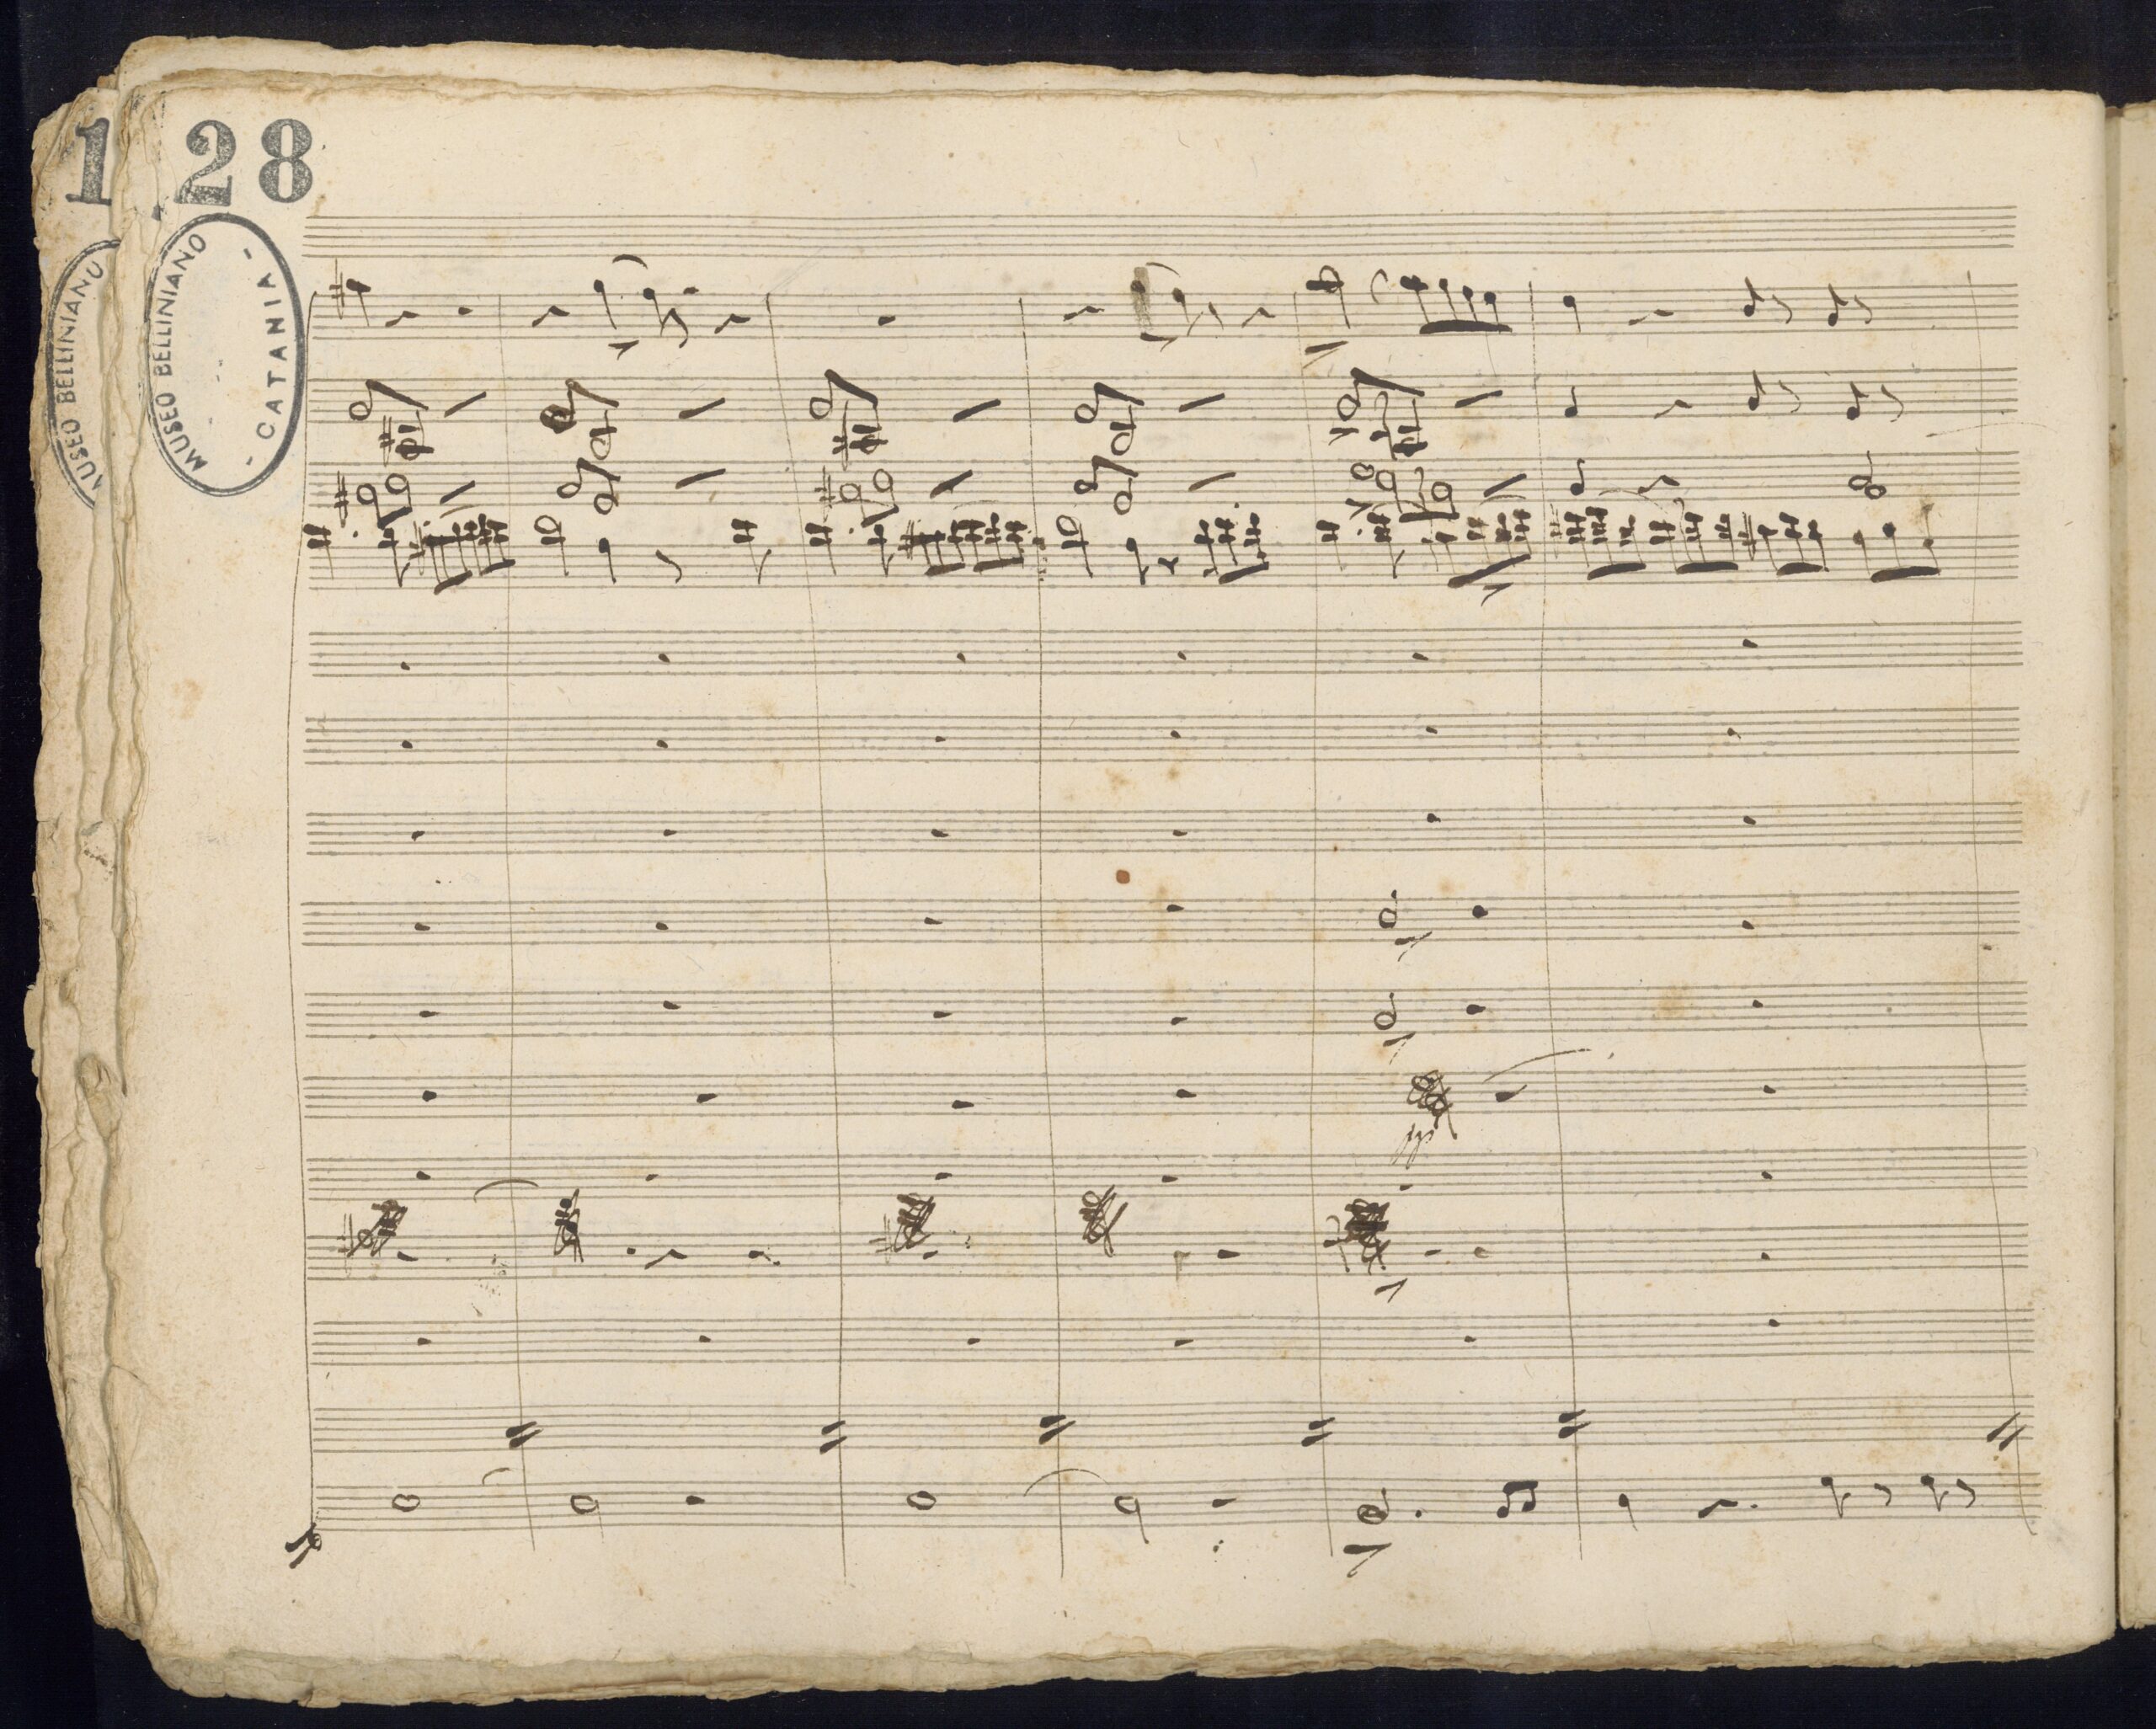 1
28
MUSEO BELLINIANO
MUSEO BELLINIANO
- CATANIA -
pp